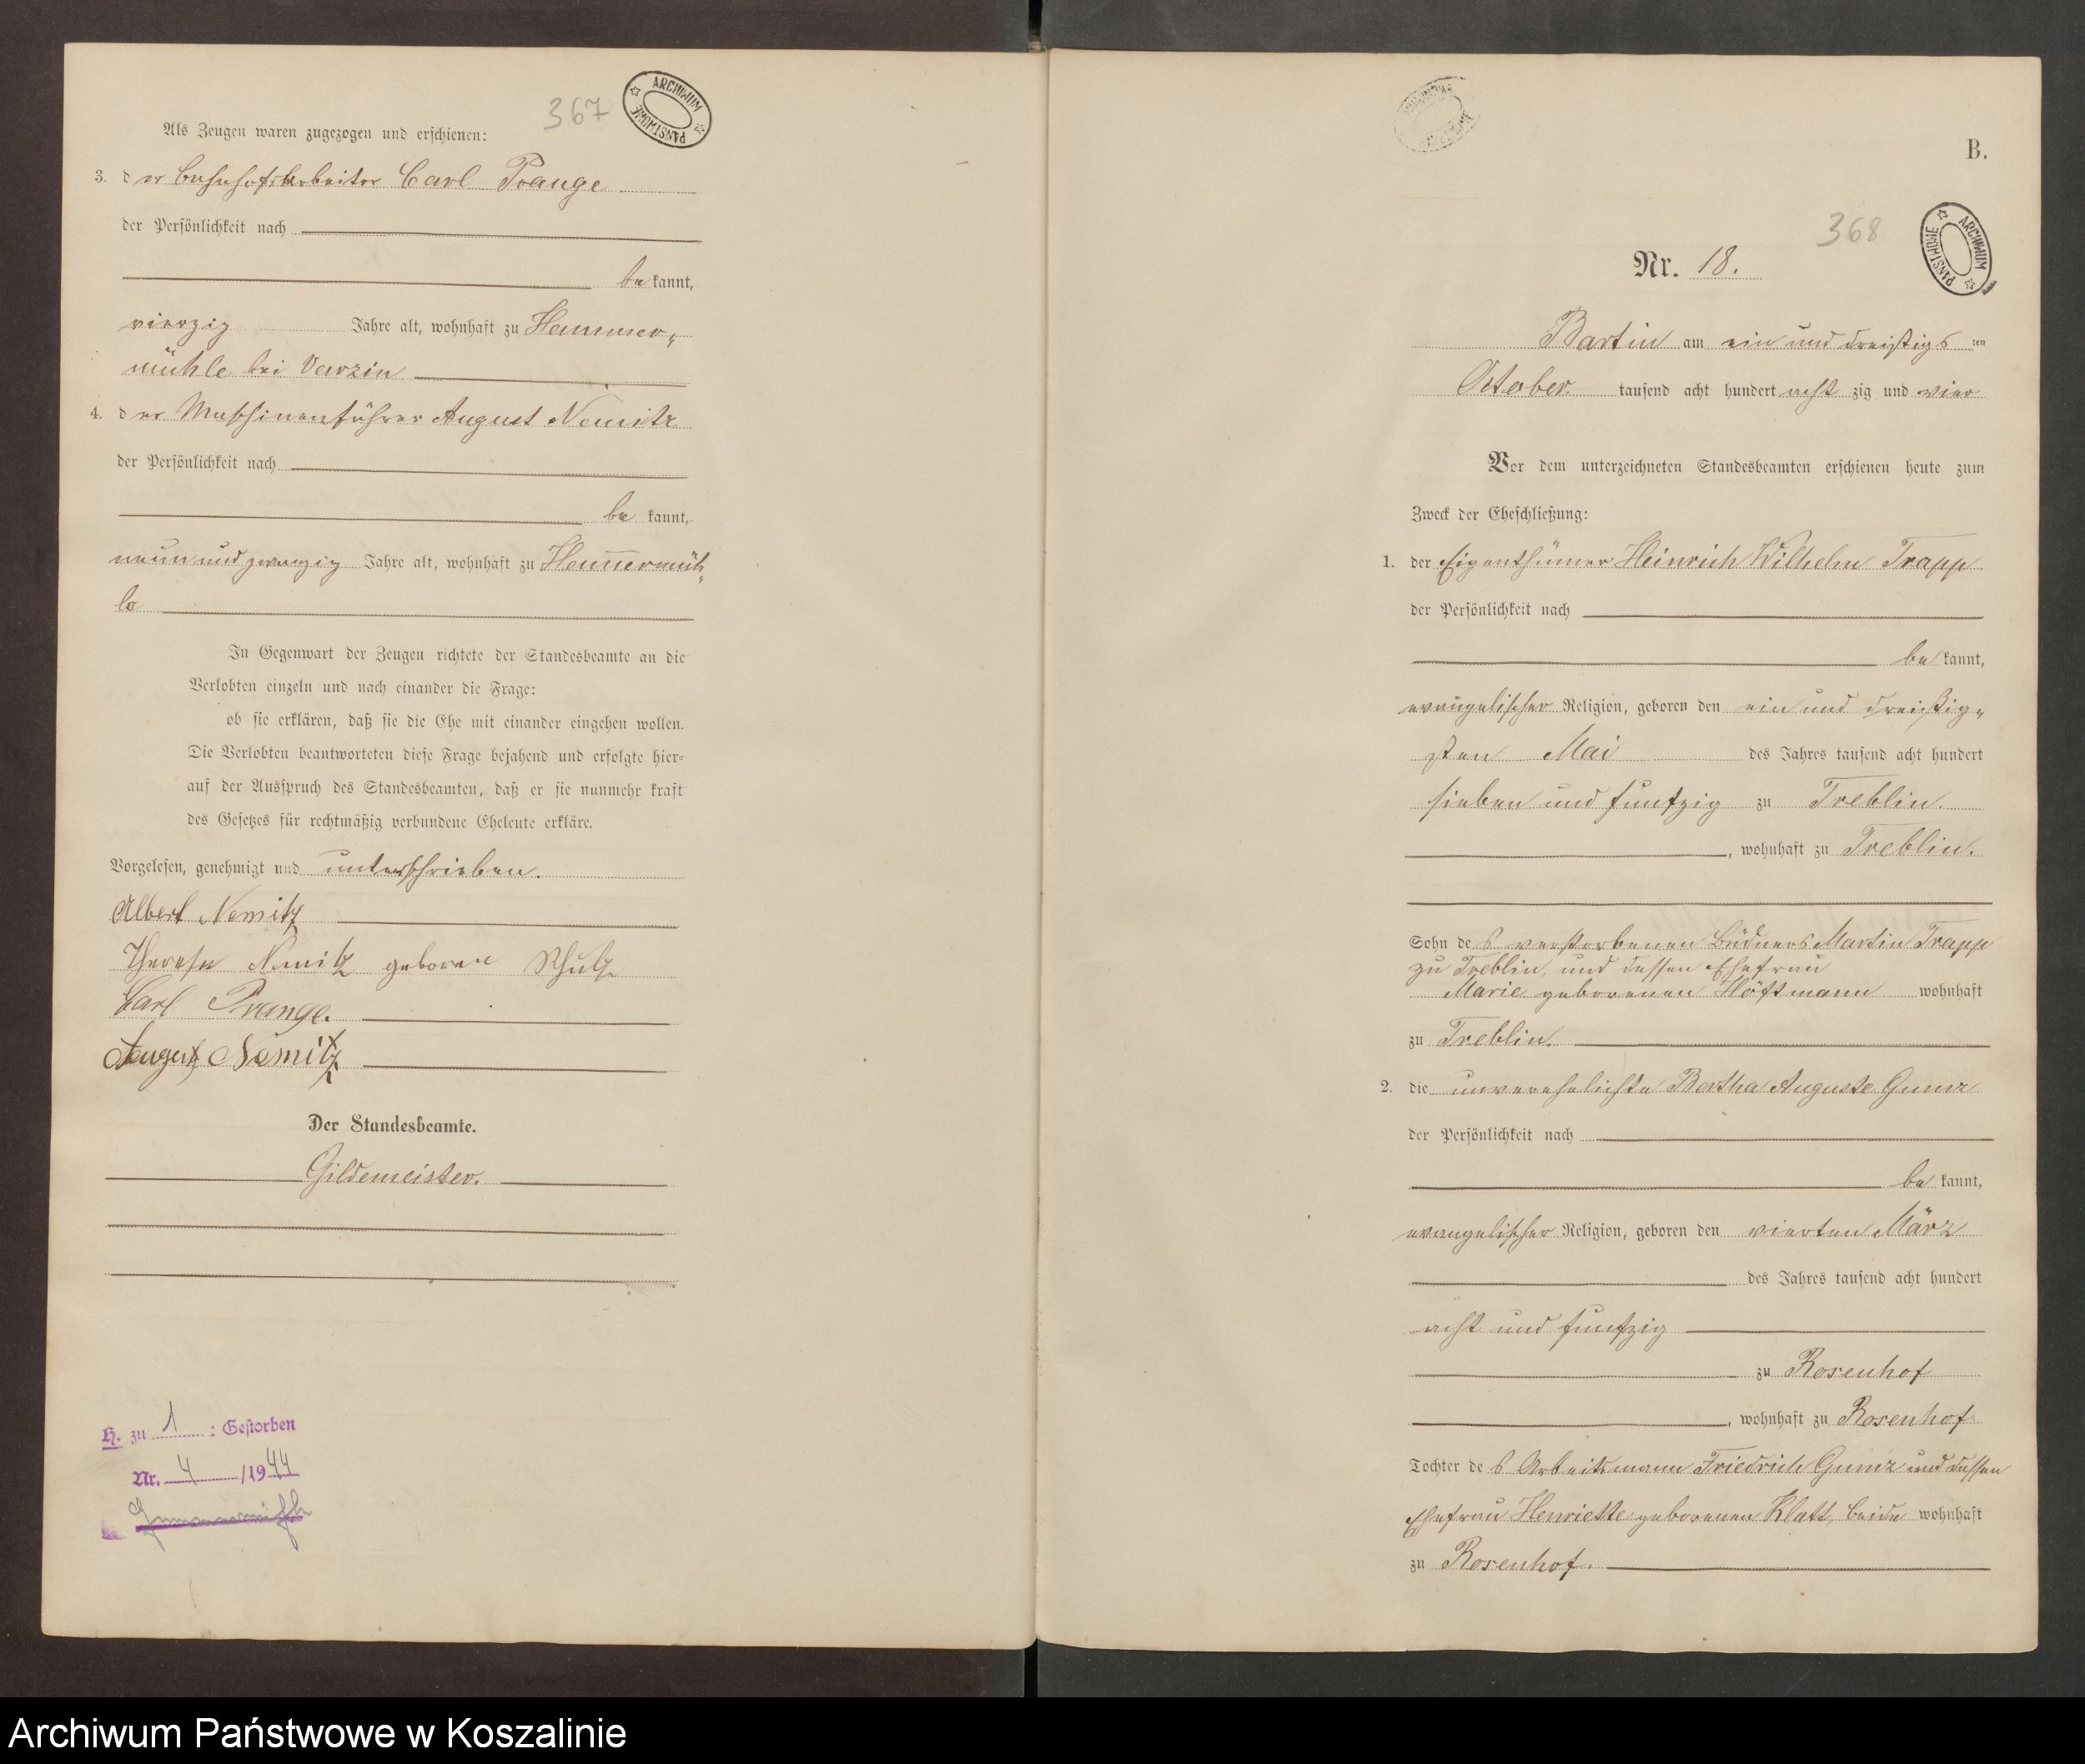 367
ARCHIWUM PAŃSTWOWE
Als Zeugen waren zugezogen und erschienen:
3. der Bahnhofsarbeiter Carl Prange
der Persönlichkeit nach
be kannt,
vierzig Jahre alt, wohnhaft zu Hammer„
mühle bei Varzin
4. der Maschinenführer August Nemitz
der Persönlichkeit nach
be kannt,
neun und zwanzig Jahre alt, wohnhaft zu Ham̅ermüh„
le
In Gegenwart der Zeugen richtete der Standesbeamte an die
Verlobten einzeln und nach einander die Frage:
ob sie erklären, daß sie die Ehe mit einander eingehen wollen.
Die Verlobten beantworteten diese Frage bejahend und erfolgte hier-
auf der Ausspruch des Standesbeamten, daß er sie nunmehr kraft
des Gesetzes für rechtmäßig verbundene Eheleute erkläre.
Vorgelesen, genehmigt und unterschrieben.
Albert Nemitz
Therese Nemitz geborene Schulz
Carl Prange.
August Nemitz
Der Standesbeamte.
Gildemeister.
H. zu 1 : Gestorben
Nr. 4 /1944
B.
368
ARCHIWUM PAŃSTWOWE
Nr. 18.
Bartin am ein und dreißigs ten
October tausend acht hundert acht zig und vier
Vor dem unterzeichneten Standesbeamten erschienen heute zum
Zweck der Eheschließung:
1. der Eigenthümer Heinrich Wilhelm Trapp
der Persönlichkeit nach
be kannt,
evangelischer Religion, geboren den ein und dreißig„
sten Mai des Jahres tausend acht hundert
sieben und funfzig zu Treblin.
, wohnhaft zu Treblin.
Sohn des verstorbenen Büdners Martin Trapp
zu Treblin, und dessen Ehefrau
Marie geborenen Höftmann wohnhaft
zu Treblin.
2. die unverehelichte Bertha Auguste Gumz
der Persönlichkeit nach
be kannt,
evangelischer Religion, geboren den vierten März
des Jahres tausend acht hundert
acht und funfzig
zu Rosenhof
, wohnhaft zu Rosenhof
Tochter des Arbeitsmann Friedrich Gumz und dessen
Ehefrau Henriette geborenen Klatt, beide wohnhaft
zu Rosenhof.
Archiwum Państwowe w Koszalinie